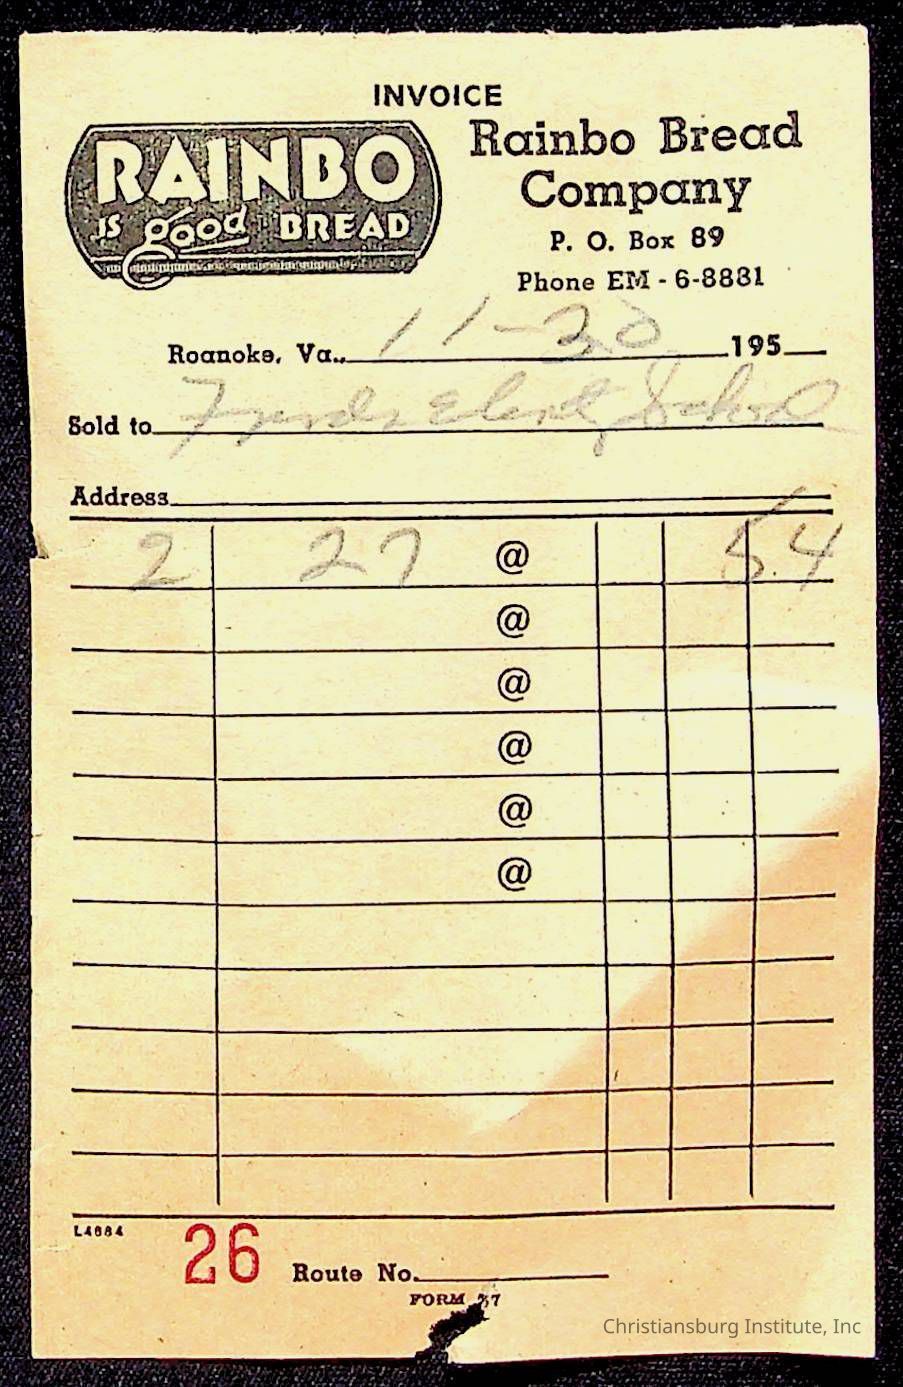 INVOICE
RAINBO
IS good BREAD
Rainbo Bread
Company
P. O. Box 89
Phone EM - 6-8881
Roanoke, Va., 11-30 195
Sold to School
Address
2 27 @ 54
@
@
@
@
@
L4684
26 Route No.
FORM 37
Christiansburg Institute, Inc